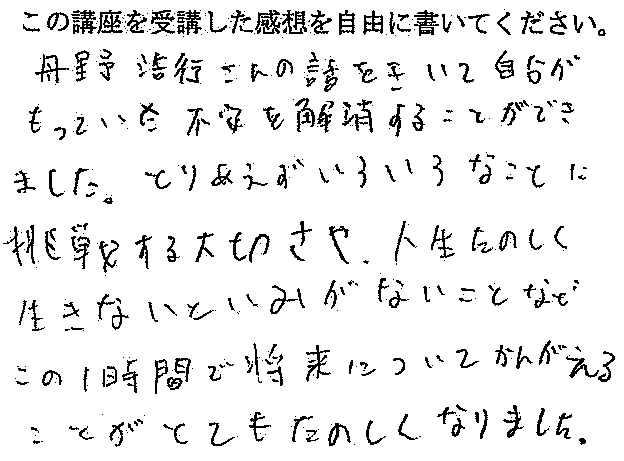 この講座を受講した感想を自由に書いてください。
丹野浩行さんの話をきいて自分が
もっていた不安を解消することができ
ました。とりあえずいろいろなことに
挑戦をする大切さや、人生たのしく
生きないといみがないことなど
この1時間で将来についてかんがえる
ことがとてもたのしくなりました。